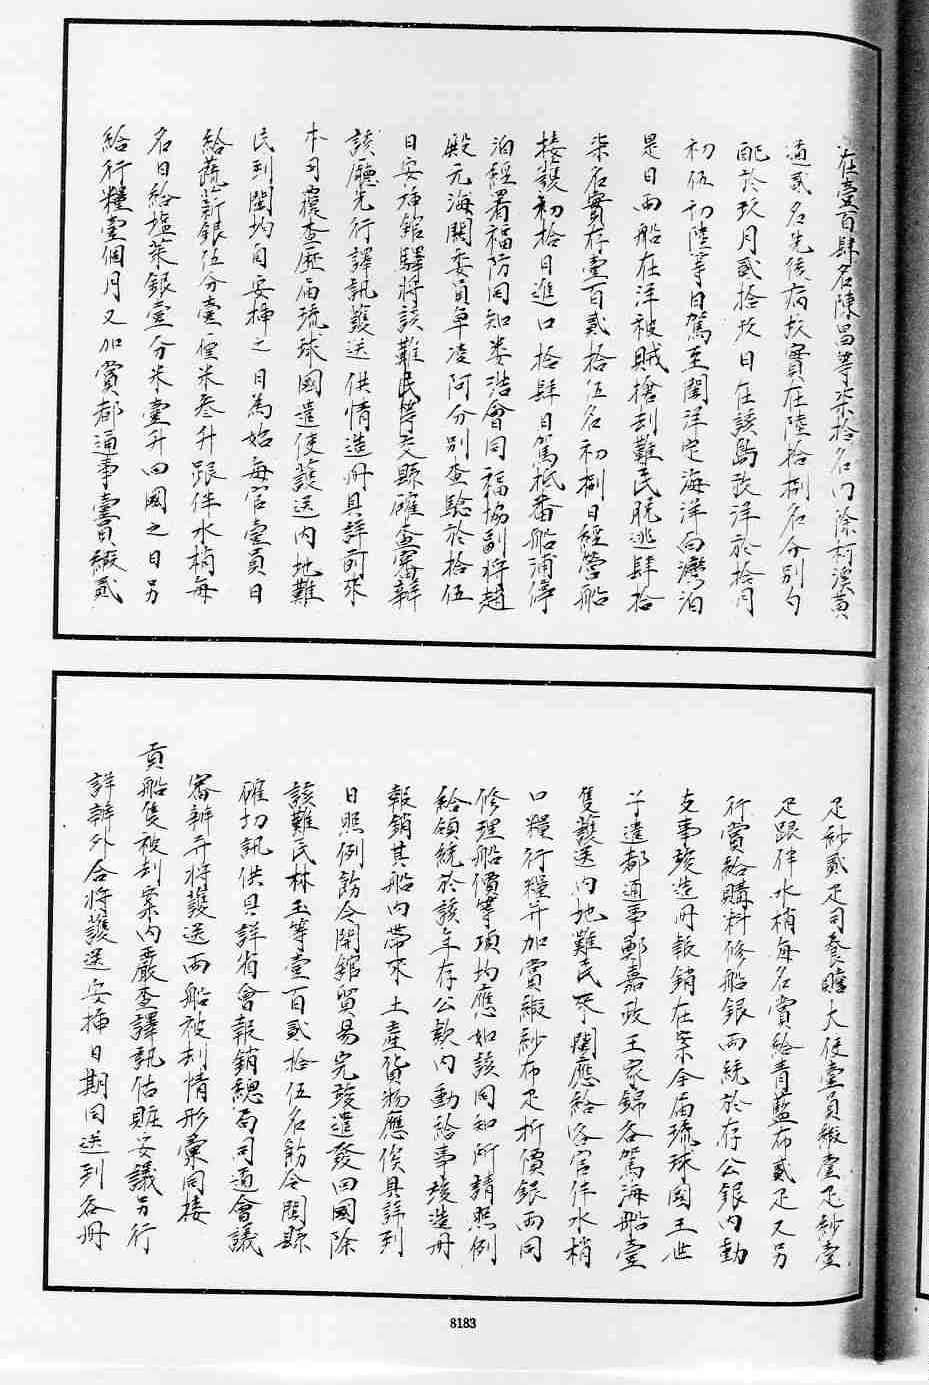 在壹百肆名陳昌等柒拾名內除柯溪黃
適貳名先後病故實在陸拾捌名分別勻
配於玖月貳拾玖日在該島放洋於拾月
初伍初陸等日駕至閩洋定海洋向灣泊
是日兩船在洋被賊搶刦難民脫逃肆拾
柒名實存壹百貳拾伍名初捌日經營船
接護初拾日進口拾肆日駕抵番船浦停
泊經署福防同知婁浩會同福協副將趙
殿元海關委員卓凌阿分別查驗於拾伍
日安揷館驛將該難民等交縣確查審辦
該廳先行譯訊護送供情造冊具詳前來
本司覆查歷屆琉球國遣使護送內地難
民到閩均自安揷之日為始每官壹員日
給蔬薪銀伍分壹厘米叁升跟伴水梢每
名日給塩菜銀壹分米壹升回國之日另
給行糧壹個月又加賞都通事壹員緞貳
疋紗貳疋司養贍大使壹員緞壹疋紗壹
疋跟伴水梢每名賞給青藍布貳疋又另
行賞給購料修船銀兩統於存公銀內動
支事竣造冊報銷在案今屆琉球國王世
子遣都通事鄭嘉政王家錦各駕海船壹
隻護送內地難民來閩應給各官伴水梢
口糧行糧并加賞緞紗布疋折價銀兩同
修理船價等項均應如該同知所請照例
給領統於該年存公款內動給事竣造冊
報銷其船內帶來土產貨物應俟具詳到
日照例飭令開館貿易完竣遣發回國除
該難民林玉等壹百貳拾伍名飭令閩縣
確切訊供具詳省會報銷總局司道會議
審辦并將護送兩船被刦情形彙同接
貢船隻被刦案內嚴查譯訊估賍妥議另行
詳辦外合將護送安揷日期同送到各冊
8183